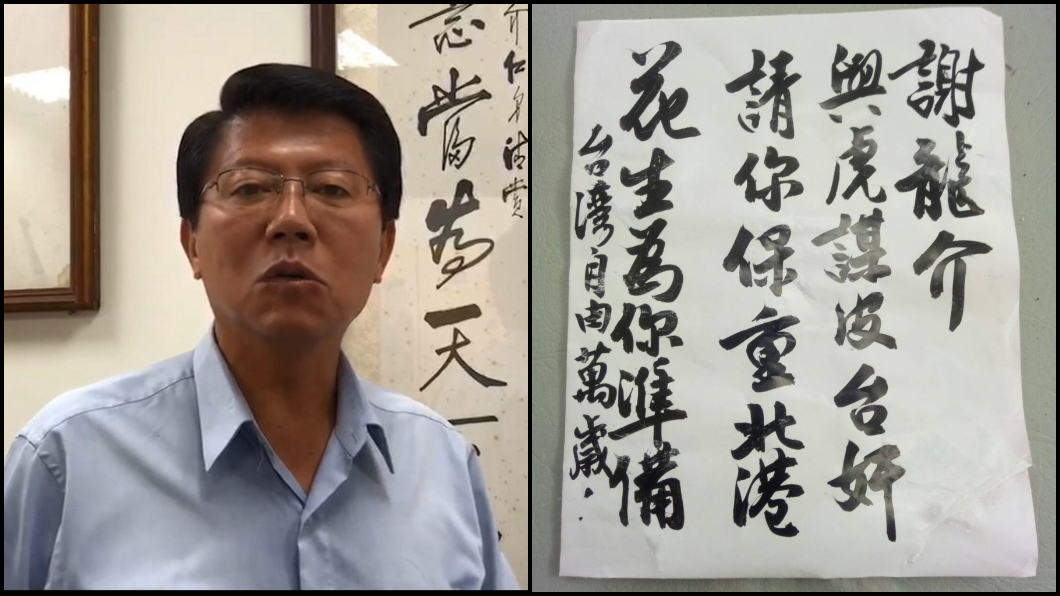 介仁兄清賞
當為天
謝龍介
與虎謀皮台奸
請你保重北港
花生為你準備
台灣自由萬歲.